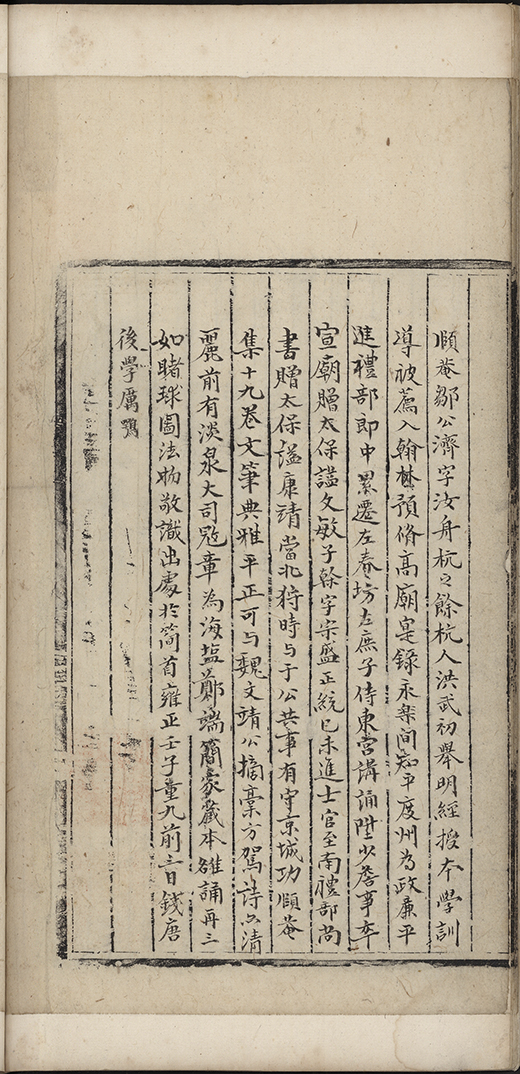 頤菴鄒公濟字汝舟杭之餘杭人洪武初舉明經授本學訓
導被薦入翰林預脩高廟寔錄永樂間知平度州為政廉平
進禮部郎中累遷左春坊左庶子侍東宮講誦陞少詹事卒
宣廟贈太保諡文敏子榦字宗盛正統己未進士官至南禮部尚
書贈太保諡康靖當北狩時与于公共事有守京城功頤菴
集十九卷文筆典雅平正可与魏文靖公摘稾方駕詩亦清
麗前有淡泉大司寇章為海塩鄭端簡家藏本雒誦再三
如睹球圖法物敬識出處於簡首雍正壬子重九前三日錢唐
後學厲鶚